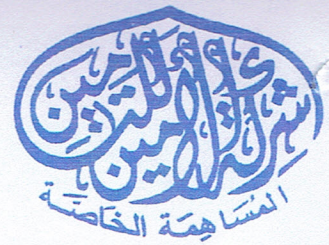 شركة الأمين للتأمين
المُسَاهِمَة الخَاصَّة